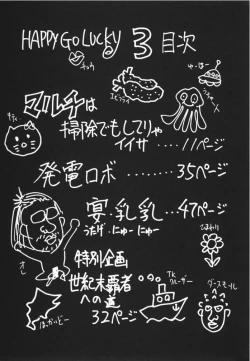 HAPPY GO LUCKY 3 目次
チュウ
ゆーほー
マルチは
掃除でもしてりゃ
イイサ ‥‥ 11ページ
発電ロボ ‥‥‥ 35ページ
宴・乳乳 ‥‥ 47ページ
うたげ・にゅーにゅー
ひまわり
特別企画
世紀末覇者
への道
32ページ
TK
クルーザー